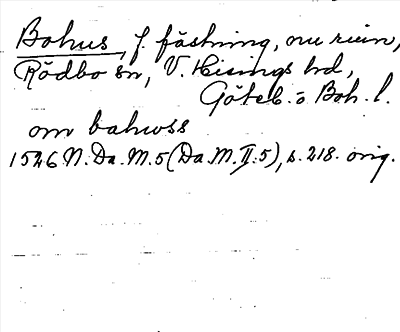 Bohus, f. fästning, nu ruin,
Rödbo sn, V. Hisings hd,
Göteb. o Boh. l.
om bahuss
1526 N. Da. M. 5 (Da. M. II:5), s. 218. orig.